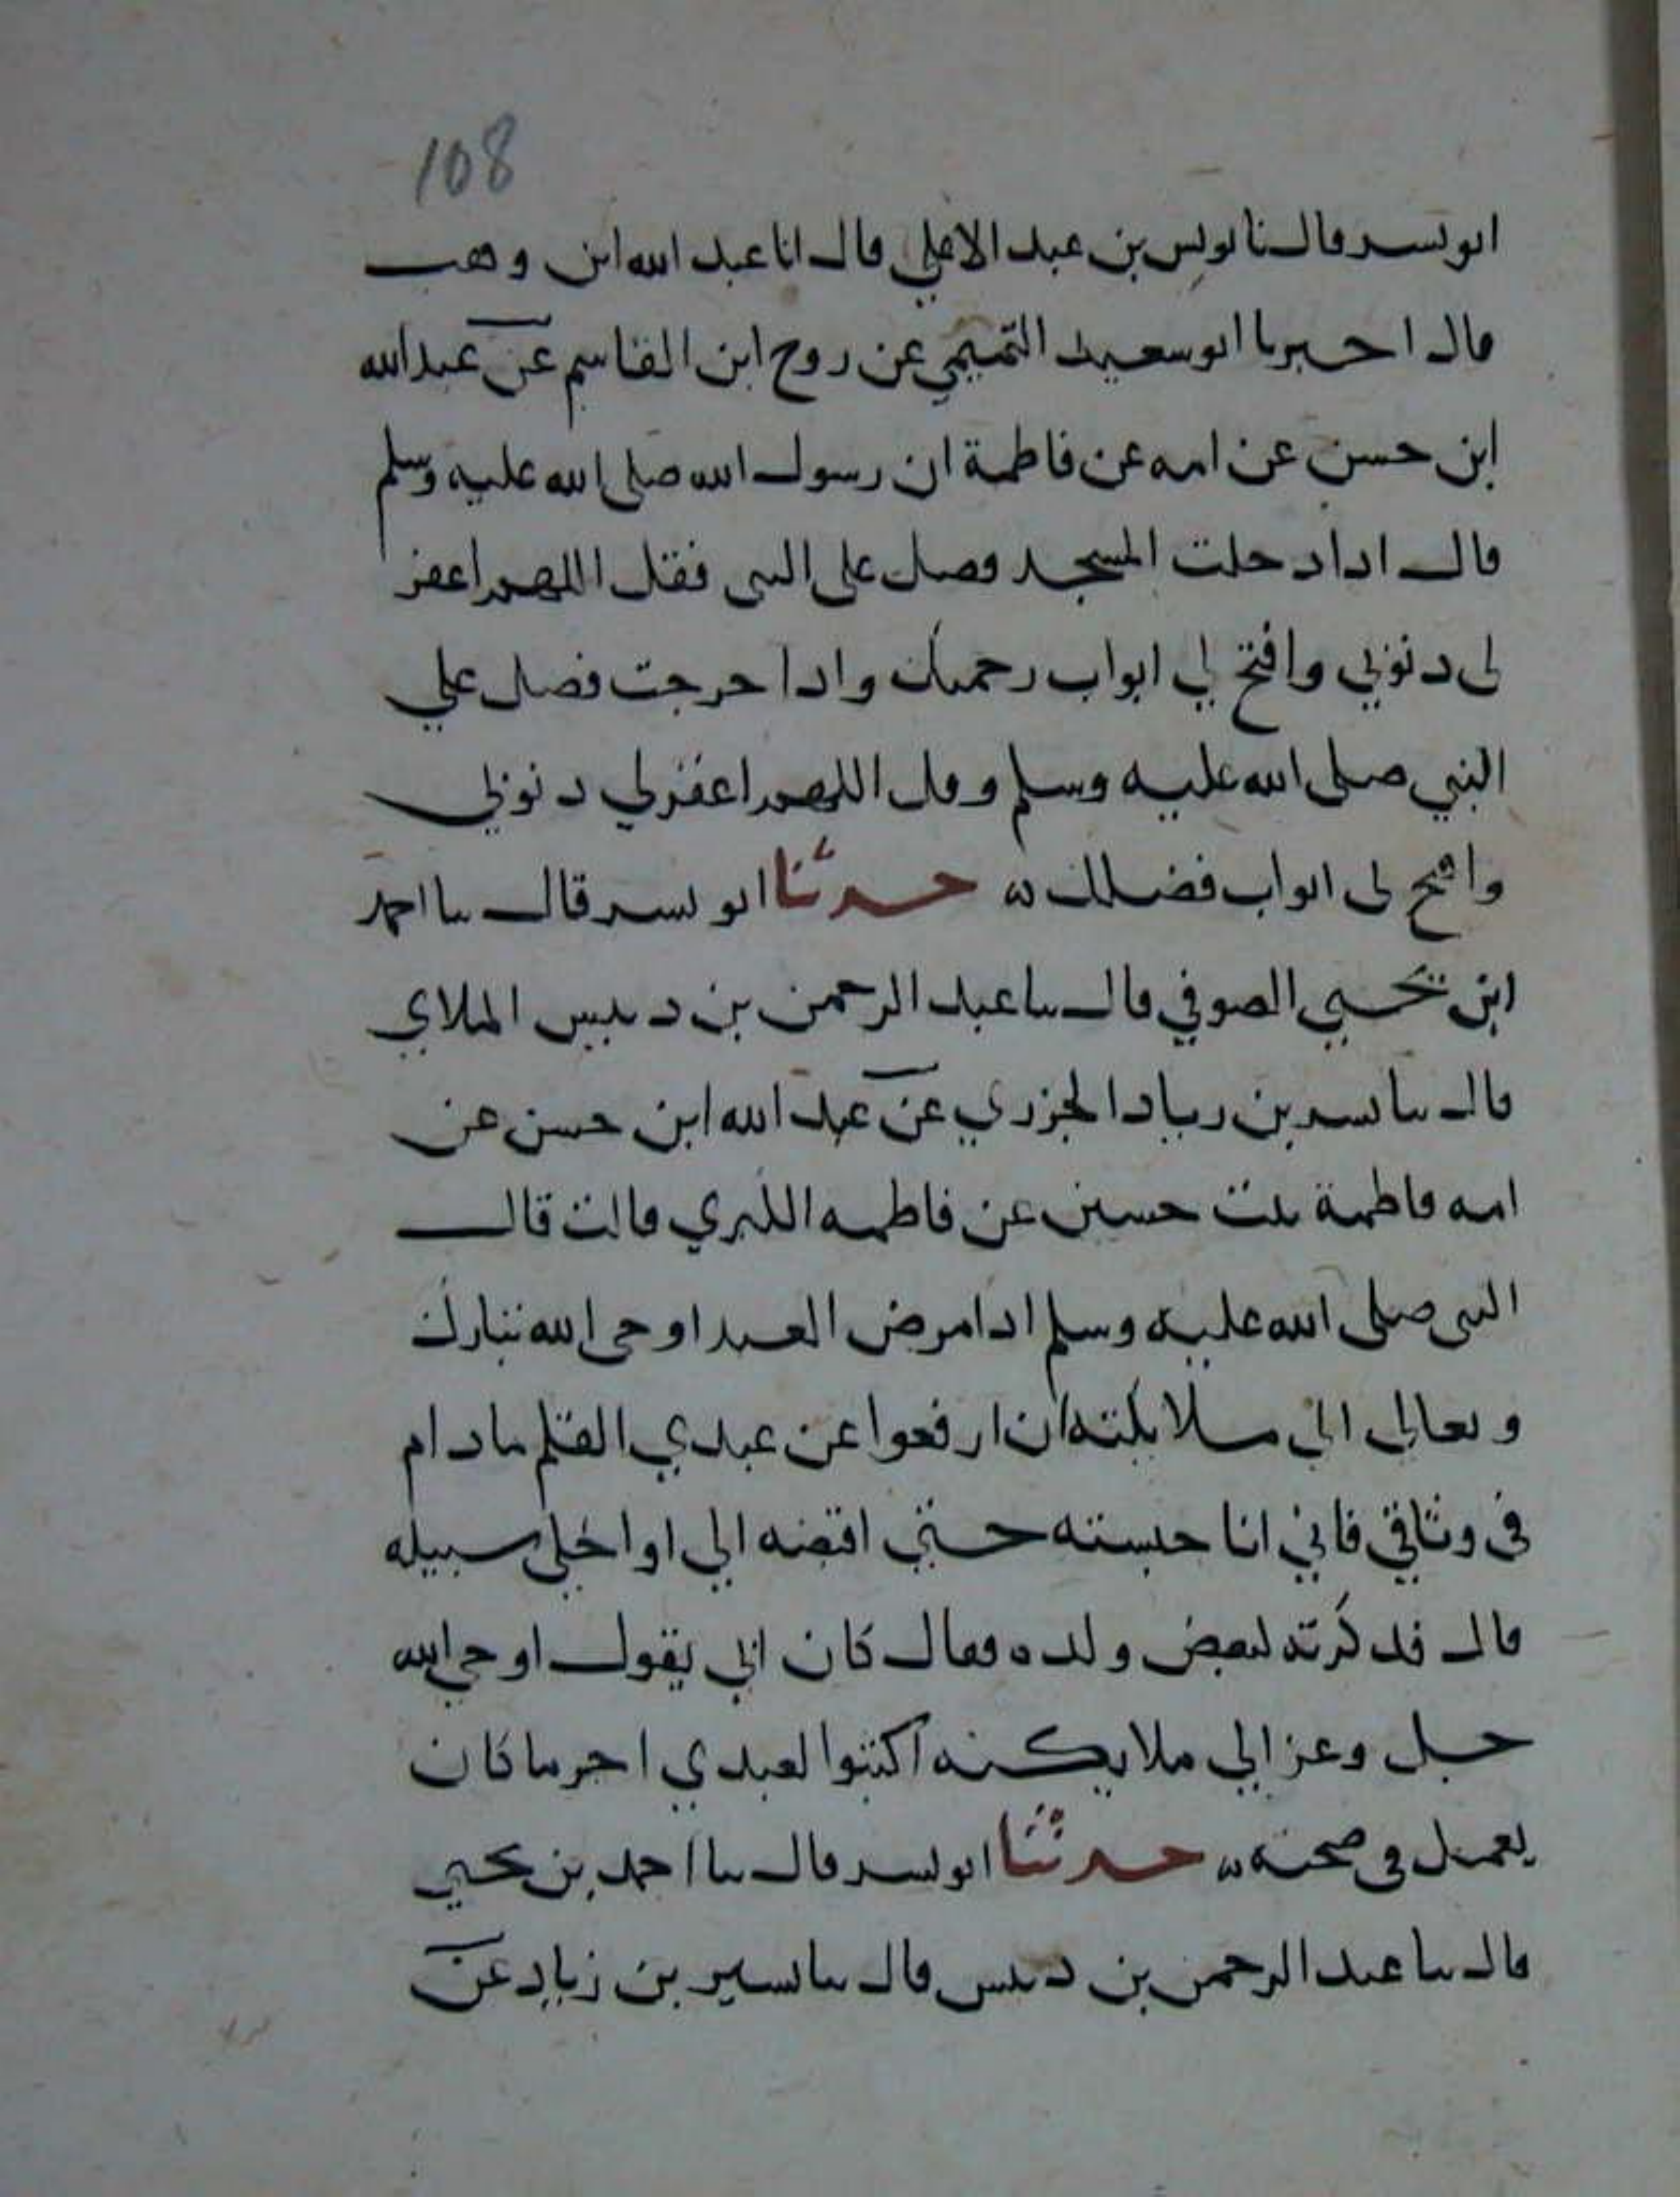 108
ابو بسر قال نا يونس بن عبد الاعلي قال انا عبد الله ابن وهب
قال اخبرنا ابو سعيد التميمي عن روح ابن القاسم عن عبد الله
ابن حسن عن امه عن فاطمة ان رسول الله صلى الله عليه وسلم
قال اذا دخلت المسجد فصل على النبي فقل اللهم اغفر
لى ذنوبي وافتح لي ابواب رحمتك واذا خرجت فصل علي
النبي صلى الله عليه وسلم وقل اللهم اغفر لي ذنوبي
وافتح لى ابواب فضلك ه حدثنا ابو بسر قال نا احمد
ابن يحيي الصوفي قال نا عبد الرحمن بن دبيس الملاي
قال نا بسر بن زياد الجزري عن عبد الله ابن حسن عن
امه فاطمة بنت حسين عن فاطمه الكبري قالت قال
النبى صلى الله عليه وسلم اذا مرض العبد اوحى الله تبارك
وتعالي الى ملايكته ان ارفعوا عن عبدي القلم ما دام
فى وثاقي فاني انا حبسته حتي اقبضه الي او اخلى سبيله
قال فذكرته لبعض ولده فقال كان ابي يقول اوحي الله
جل وعز الي ملايكته اكتبوا لعبدي اجر ما كان
يعمل فى صحته ه حدثنا ابو بسر قال نا احمد بن يحيي
قال نا عبد الرحمن بن دبيس قال نا بسير بن زياد عن